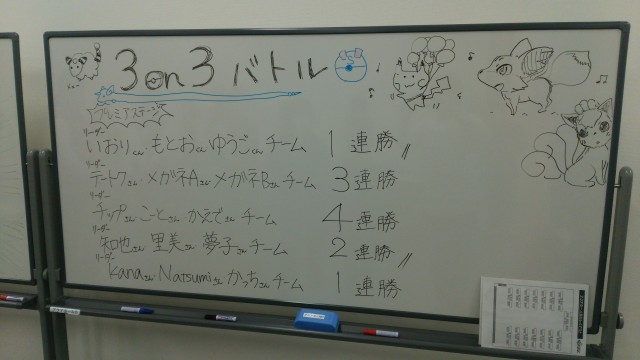 3on3 バトル VS
プレミアステージ
リーダー
いおりくん もとおくん ゆうごくん チーム 1連勝
リーダー
テートクさん メガネAさん メガネBさん チーム 3連勝
リーダー
チップさん こーとさん かえでさん チーム 4連勝
リーダー
知也さん 里美さん 夢子さん チーム 2連勝
リーダー
kanaさん Natsumiさん かっちさん チーム 1連勝